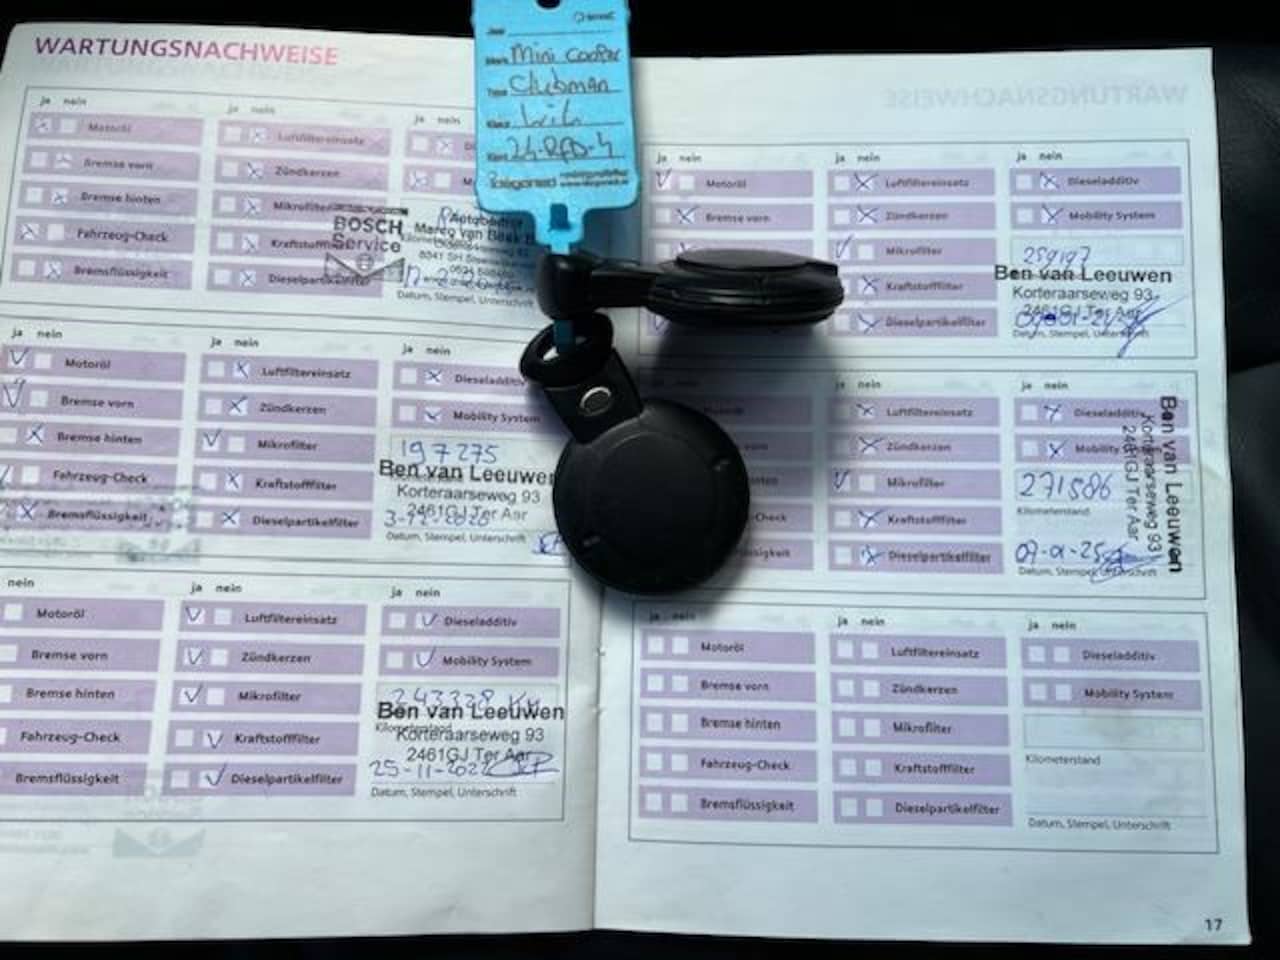 WARTUNGSNACHWEISE
Merk Mini Cooper
Type Clubman
Kleur Wit
Kent 24-RFD-4
ja nein
Motoröl
Bremse vorn
Bremse hinten
Fahrzeug-Check
Bremsflüssigkeit
ja nein
Luftfiltereinsatz
Zündkerzen
Mikrofilter
Dieselpartikelfilter
ja nein
BOSCH
Service
Marco van Beek
Datum, Stempel, Unterschrift
ja nein
Motoröl
Bremse vorn
Bremse hinten
Fahrzeug-Check
Bremsflüssigkeit
ja nein
Luftfiltereinsatz
Zündkerzen
Mikrofilter
Kraftstofffilter
Dieselpartikelfilter
ja nein
Dieseladditiv
Mobility System
197275
Ben van Leeuwen
Korteraarseweg 93
2461GJ Ter Aar
Datum, Stempel, Unterschrift
nein
Motoröl
Bremse vorn
Bremse hinten
Fahrzeug-Check
Bremsflüssigkeit
ja nein
Luftfiltereinsatz
Zündkerzen
Mikrofilter
Kraftstofffilter
Dieselpartikelfilter
ja nein
Dieseladditiv
Mobility System
Ben van Leeuwen
Kilometerstand
Korteraarseweg 93
2461GJ Ter Aar
25-11-2022
Datum, Stempel, Unterschrift
ja nein
Motoröl
Bremse vorn
ja nein
Luftfiltereinsatz
Zündkerzen
Mikrofilter
Kraftstofffilter
Dieselpartikelfilter
ja nein
Dieseladditiv
Mobility System
259197
Ben van Leeuwen
Korteraarseweg 93
2461GJ Ter Aar
Datum, Stempel, Unterschrift
ja nein
Luftfiltereinsatz
Zündkerzen
Mikrofilter
Kraftstofffilter
Dieselpartikelfilter
ja nein
Dieseladditiv
Mobility System
271586
Kilometerstand
09-01-25
Datum, Stempel, Unterschrift
Ben van Leeuwen
Korteraarseweg 93
2461GJ Ter Aar
ja nein
Motoröl
Bremse vorn
Bremse hinten
Fahrzeug-Check
Bremsflüssigkeit
ja nein
Luftfiltereinsatz
Zündkerzen
Mikrofilter
Kraftstofffilter
Dieselpartikelfilter
ja nein
Dieseladditiv
Mobility System
Kilometerstand
Datum, Stempel, Unterschrift
17